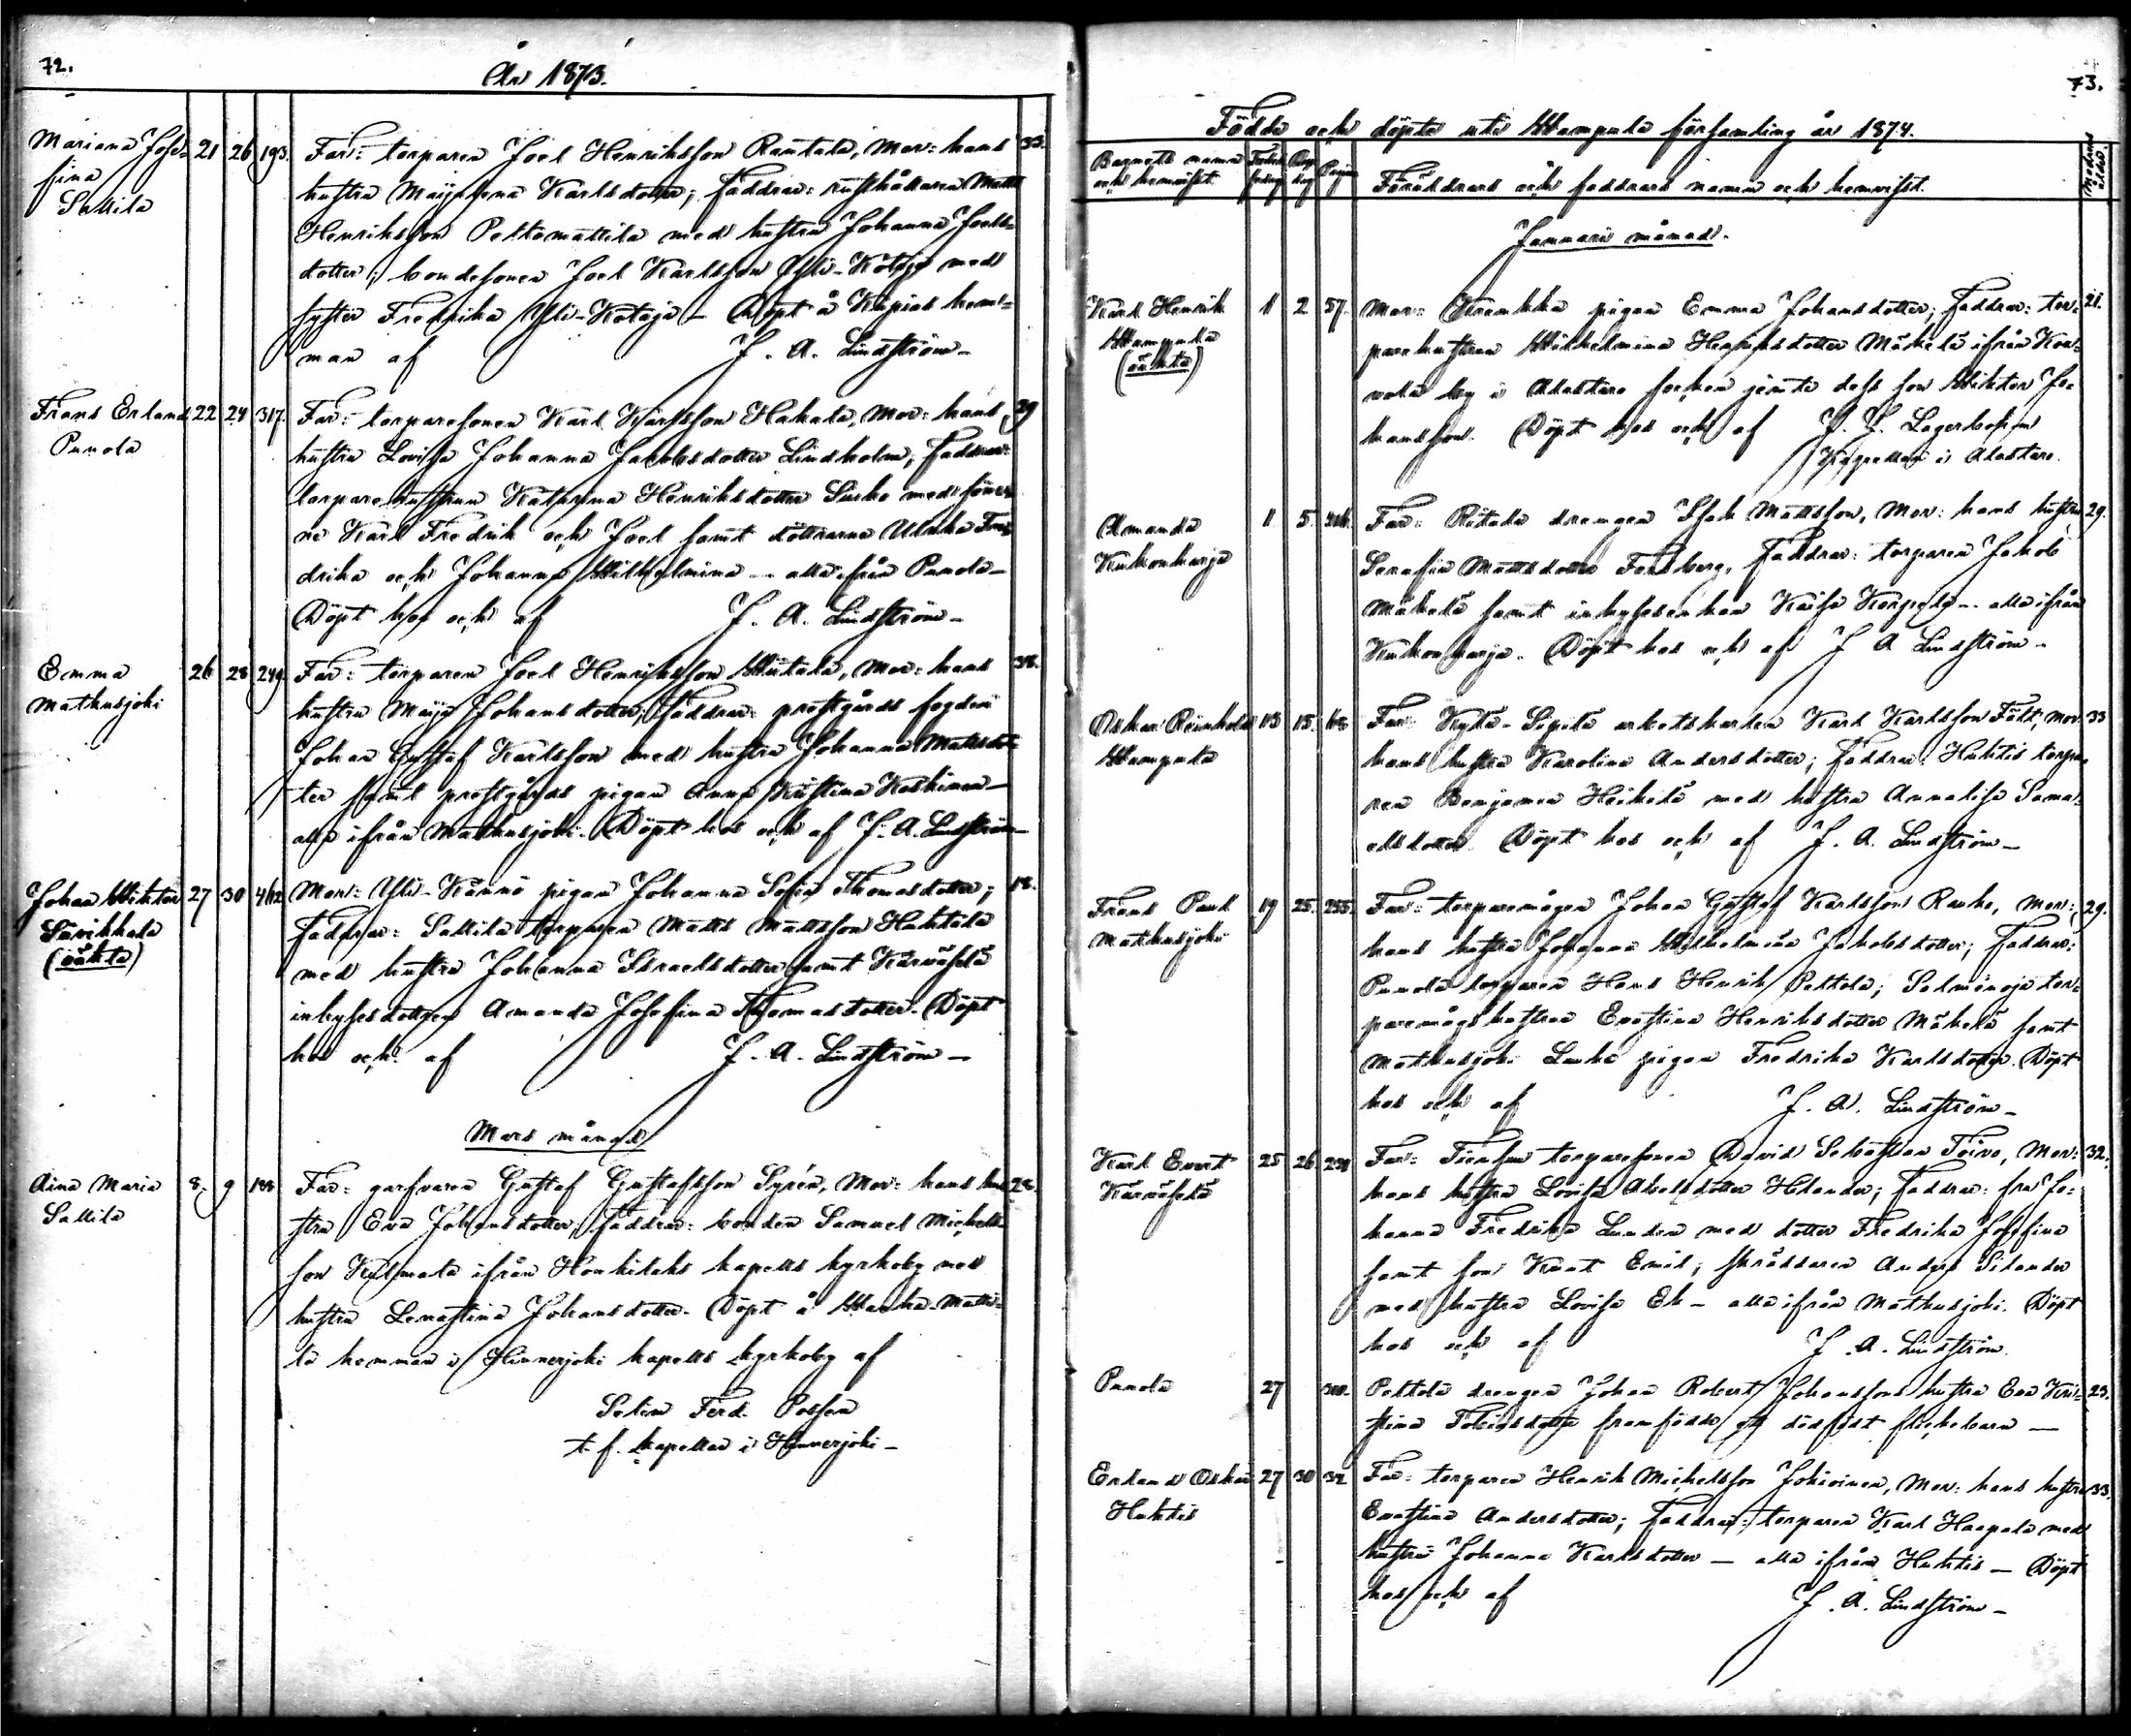 72.
År 1873.
Mariana Jose-
fina
Sallila
21 26 193.
Far: torparen Joel Henriksson Rautala, Mor: hans 33.
hustru Maijalena Karlsdotter; Faddrar: rusthållaren Matts
Henriksson Peltomattila med hustru Johanna Joels-
dotter; bondesonen Joel Karlsson Yli-Kotaja med
syster Fredrika Yli-Kotaja – Döpt å hem-
man af J. A. Lindström –
Frans Erland
Punola
22 24 317.
Far: torparesonen Karl Karlsson Hakala, Mor: hans 29
hustru Lovisa Johanna Jakobsdotter Lindholm; Faddrar:
torparehustrun Katarina Henriksdotter med söner-
ne Karl Fredrik och Joel samt döttrarna Ulrika Fre-
drika och Johanna Wilhelmina – alla ifrån Punola –
Döpt hos och af J. A. Lindström –
Emma
Matkusjoki
26 28 249.
Far: torparen Joel Henriksson Uutala, Mor: hans 38.
hustru Maija Johansdotter; Faddrar: prostgårds fogden
Johan Gustaf Karlsson med hustru Johanna Mattsdot-
ter samt prostgårds pigan Anna Kristina Koskinen –
alla ifrån Matkusjoki. Döpt hos och af J. A. Lindström –
Johan Wiktor
Säkikkala
(oäkta)
27 30
Mor: Yli-Kännö pigan Johanna Sofia Thomasdotter; 18.
Faddrar: Sallila torparen Matts Mattsson Huhtala
med hustru Johanna Israelsdotter samt Karväselä
inhysesdottren Amanda Josefina Thomasdotter. Döpt
hos och af J. A. Lindström –
Mars månad
Aina Maria
Sallila
8. 9 188
Far: garfvaren Gustaf Gustafsson Syrén, Mor: hans hu- 28.
stru Eva Johansdotter; Faddrar: bonden Samuel Michels-
son Kylmälä ifrån Honkilaks kapells kyrkoby med
hustru Lenastina Johansdotter. Döpt å Matti-
la hemman i Hinnerjoki kapells kyrkoby af
Selim Ferd. Possen
t. f. kapellan i Hinnerjoki –
73.
Födde och döpte uti Wampula församling år 1874.
Barnets namn
och hemvist.
Födel-
sedag
Döp
dag
Pagina
Föräldrars och faddrars namn och hemvist.
Modrens
ålder.
Januari månad.
Karl Henrik
Wampula
(oäkta)
1 2 57.
Mor: pigan Emma Johansdotter; Faddrar: tor- 21.
parehustrun Wilhelmina Henriksdotter Mäkelä ifrån Kon-
vola by i Alastaro socken jemte dess son Wiktor Jo-
hansson. Döpt hos och af J. J. Lagerbohm
Kapellan i Alastaro.
Amanda
Kukonharja
1 5.
Far: Ritala drengen Isak Mattsson, Mor: hans hustru 29.
Serafia Mattsdotter Forsberg. Faddrar: torparen Jakob
Mäkelä samt inhysesenkan Kaisa – alla ifrån
Kukonharja. Döpt hos och af J A Lindström –
Oskar Reinhold
Wampula
13 15.
Far: Kylä-Sepilä arbetskarlen Karl Karlsson Fält, Mor: 33
hans hustru Karolina Andersdotter; Faddrar: Huhtis torpa-
ren Benjamin Heikelä med hustru Annalisa Samu-
elsdotter. Döpt hos och af J. A. Lindström –
Frans Paul
Matkusjoki
19 25. 255.
Far: torparemågen Johan Gustaf Karlsson Rauko, Mor: 29.
hans hustru Johanna Wilhelmina Jakobsdotter; Faddrar:
Punola torparen Hans Henrik Peltola; Salminoja tor-
paremågshustrun Evastina Henriksdotter Mäkelä samt
Matkusjoki pigan Fredrika Karlsdotter. Döpt
hos och af J. A. Lindström –
Karl Evert
Karväselä
25 26
Far: torparesonen David Sebastian Toivo, Mor: 32.
hans hustru Lovisa Abelsdotter Helander; Faddrar: fru Jo-
hanna Fredrika Lunden med dotter Fredrika Josefina
samt son Knut Emil; skräddaren Anders Silander
med hustru Lovisa Ek – alla ifrån Matkusjoki. Döpt
hos och af J. A. Lindström.
Punola
27
Peltola drengen Johan Robert Johanssons hustru Eva Kri- 23.
stina Tobiasdotter framfödde ett dödfödt flickebarn —
Erland Oskar
Huhtis
27 30 32
Far: torparen Henrik Michelsson Jokioinen, Mor: hans hustru 33.
Evastina Andersdotter; Faddrar: torparen Karl Haapala med
hustru Johanna Karlsdotter – alla ifrån Huhtis – Döpt
hos och af J. A. Lindström –